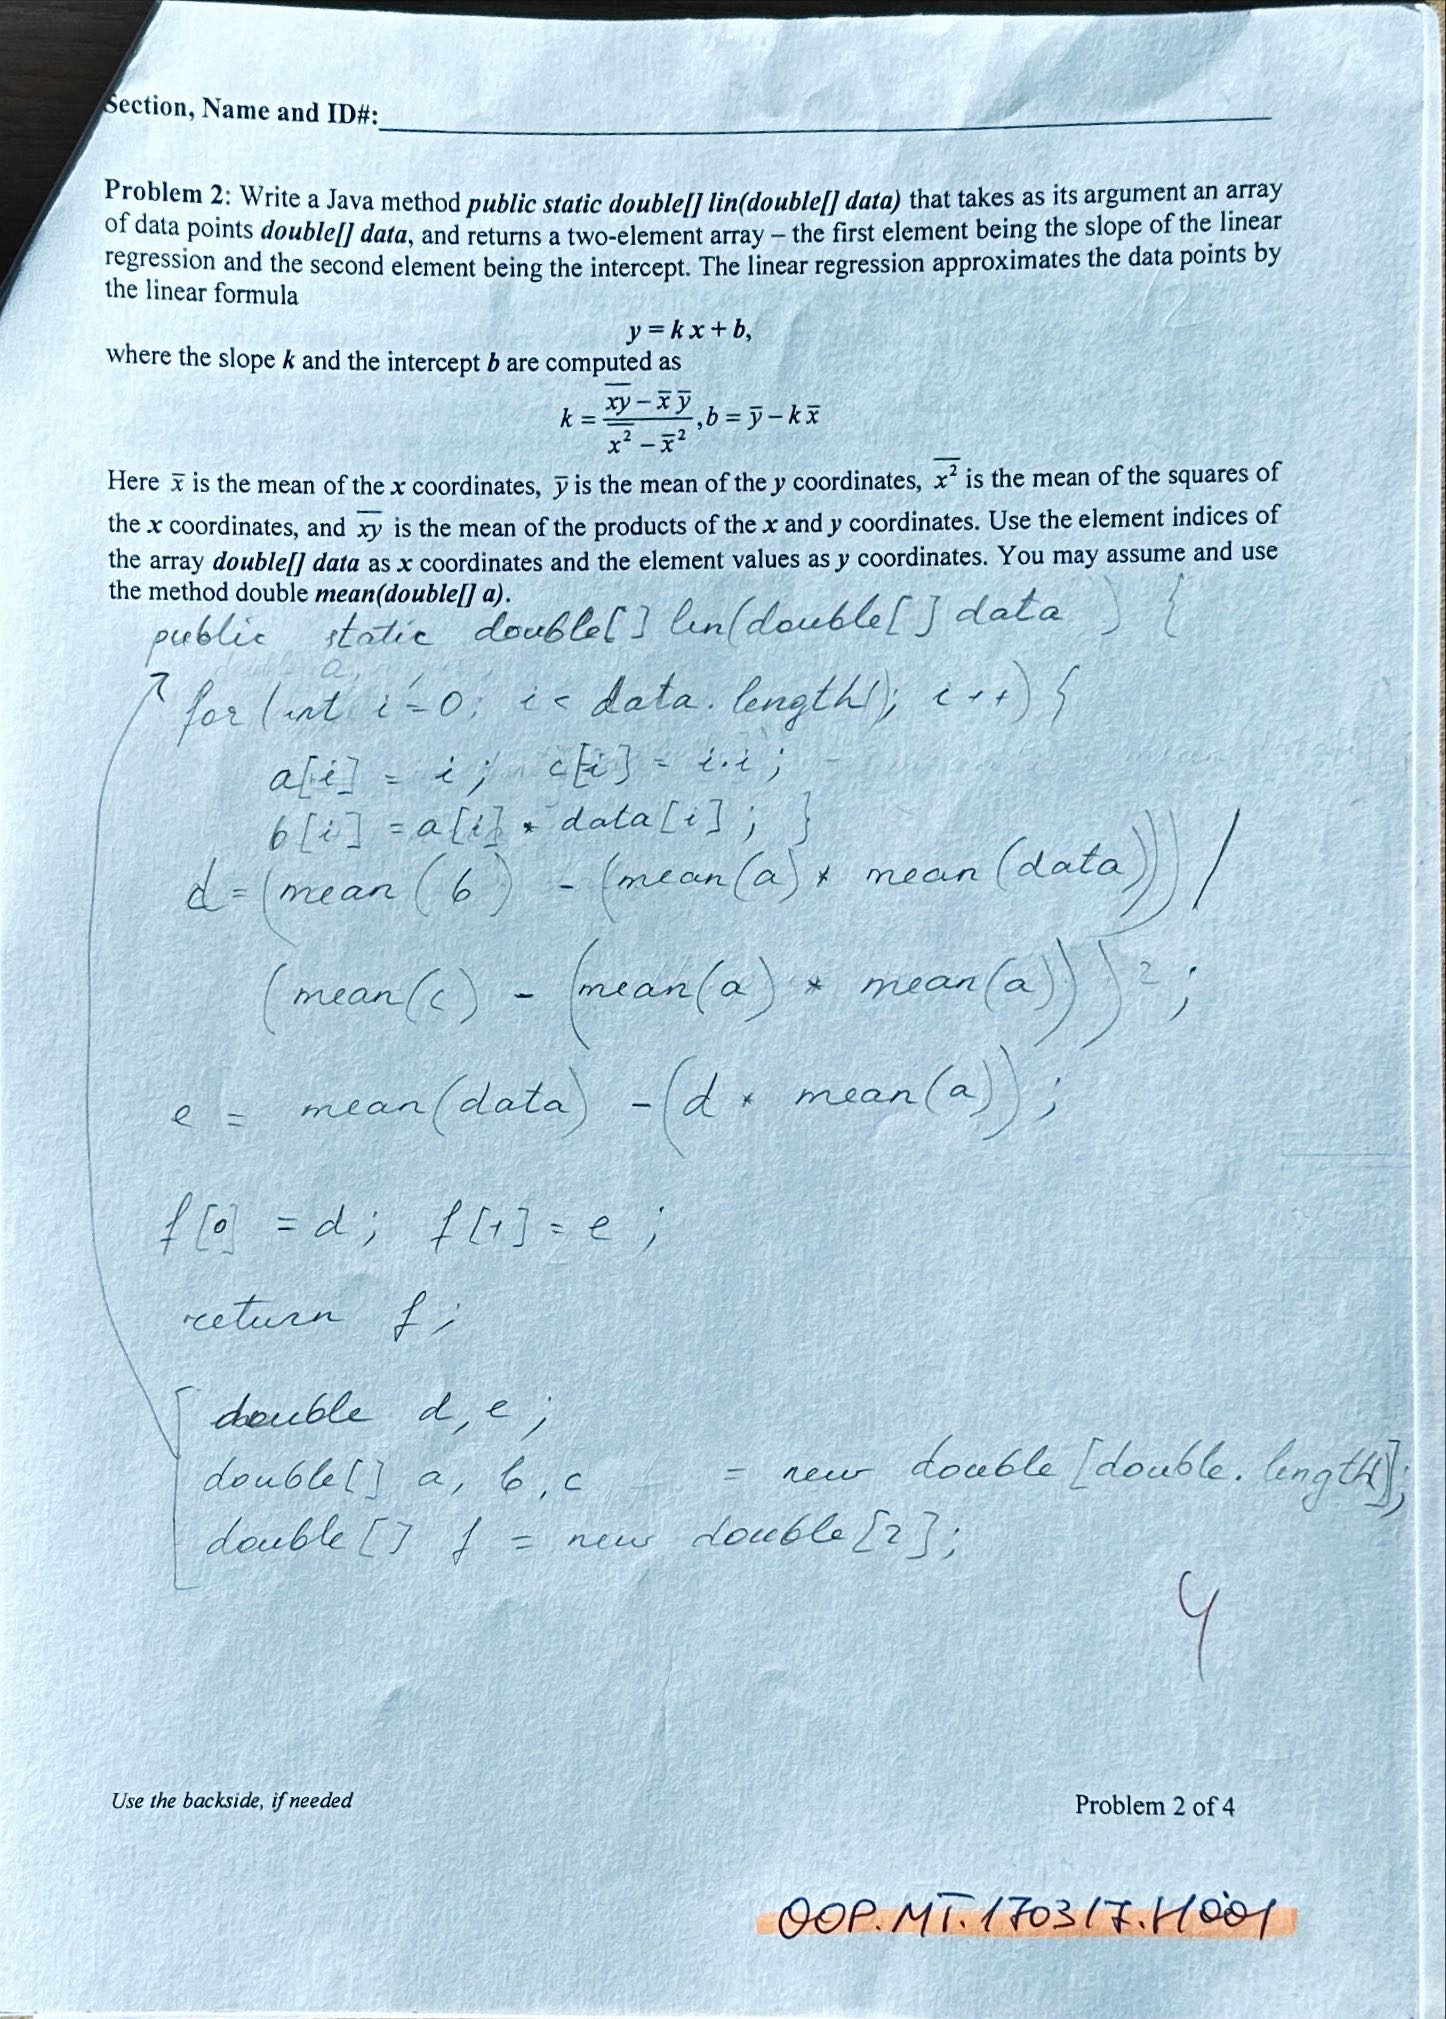 Section, Name and ID#:
Problem 2: Write a Java method public static double[] lin(double[] data) that takes as its argument an array
of data points double[] data, and returns a two-element array – the first element being the slope of the linear
regression and the second element being the intercept. The linear regression approximates the data points by
the linear formula
y = k x + b,
where the slope k and the intercept b are computed as
k = (x̅y̅ − x̄ ȳ) / (x²̅ − x̄²), b = ȳ − k x̄
Here x̄ is the mean of the x coordinates, ȳ is the mean of the y coordinates, x²̅ is the mean of the squares of
the x coordinates, and x̅y̅ is the mean of the products of the x and y coordinates. Use the element indices of
the array double[] data as x coordinates and the element values as y coordinates. You may assume and use
the method double mean(double[] a).
public static double[] lin(double[] data) {
for (int i=0; i< data.length(); i++) {
a[i] = i; c[i] = i·i;
b[i] = a[i] * data[i]; }
d = (mean(b) - (mean(a) * mean(data))) /
(mean(c) - (mean(a) * mean(a)))²;
e = mean(data) - (d * mean(a));
f[0] = d; f[1] = e;
return f;
double d, e;
double[] a, b, c = new double[double.length];
double[] f = new double[2];
4
Use the backside, if needed
Problem 2 of 4
OOP.MT.170317.H001